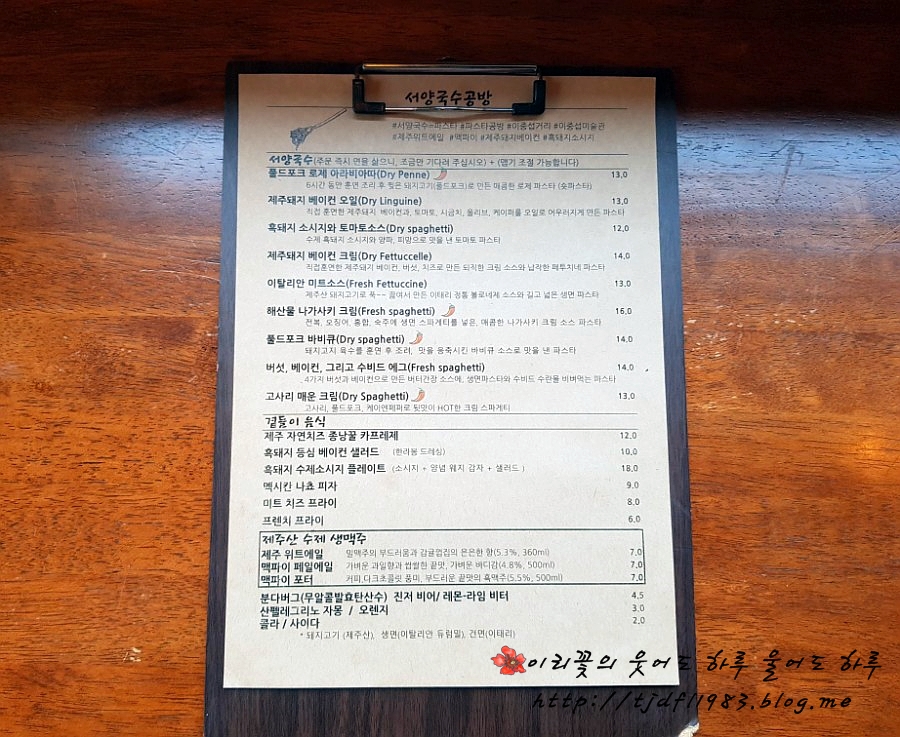 서양국수공방
#서양국수=파스타 #파스타공방 #이중섭거리 #이중섭미술관
#제주위트에일 #맥파이 #제주돼지베이컨 #흑돼지소시지
서양국수(주문 즉시 면을 삶으니, 조금만 기다려 주십시오) + (맵기 조절 가능합니다)
풀드포크 로제 아라비아따(Dry Penne) 13,0
6시간 동안 훈연 조리 후 찢은 돼지고기(풀드포크)로 만든 매콤한 로제 파스타 (숏파스타)
제주돼지 베이컨 오일(Dry Linguine) 13,0
직접 훈연한 제주돼지 베이컨과, 토마토, 시금치, 올리브, 케이퍼를 오일로 어우러지게 만든 파스타
흑돼지 소시지와 토마토소스(Dry spaghetti) 12,0
수제 흑돼지 소시지와 양파, 피망으로 맛을 낸 토마토 파스타
제주돼지 베이컨 크림(Dry Fettuccelle) 14,0
직접훈연한 제주돼지 베이컨, 버섯, 치즈로 만든 되직한 크림 소스와 납작한 페투치네 파스타
이탈리안 미트소스(Fresh Fettuccine) 13.0
제주산 돼지고기로 푹~~ 끓여서 만든 이태리 정통 볼로네제 소스와 길고 넓은 생면 파스타
해산물 나가사키 크림(Fresh spaghetti) 16,0
전복, 오징어, 홍합, 숙주에 생면 스파게티를 넣은, 매콤한 나가사키 크림 소스 파스타
풀드포크 바비큐(Dry spaghetti) 14.0
돼지고지 육수를 훈연 후 조려, 맛을 응축시킨 바비큐 소스로 맛을 낸 파스타
버섯, 베이컨, 그리고 수비드 에그(Fresh spaghetti) 14.0
4가지 버섯과 베이컨으로 만든 버터간장 소스에, 생면파스타와 수비드 수란을 비벼먹는 파스타
고사리 매운 크림(Dry Spaghetti) 13,0
고사리, 풀드포크, 케이엔페퍼로 뒷맛이 HOT한 크림 스파게티
곁들이 음식
제주 자연치즈 종낭꿀 카프레제 12,0
흑돼지 등심 베이컨 샐러드 (한라봉 드레싱) 10,0
흑돼지 수제소시지 플레이트 (소시지 + 양념 웨지 감자 + 샐러드 ) 18,0
멕시칸 나쵸 피자 9.0
미트 치즈 프라이 8.0
프렌치 프라이 6,0
제주산 수제 생맥주
제주 위트에일 밀맥주의 부드러움과 감귤껍집의 은은한 향(5.3%, 360ml) 7,0
맥파이 페일에일 가벼운 과일향과 쌉쌀한 끝맛, 가벼운 바디감(4.8%, 500ml) 7,0
맥파이 포터 커피,다크초콜릿 풍미, 부드러운 끝맛의 흑맥주(5,5%, 500ml) 7,0
분다버그(무알콜발효탄산수) 진저 비어/ 레몬-라임 비터 4,5
산펠레그리노 자몽 / 오렌지 3,0
콜라 / 사이다 2,0
* 돼지고기 (제주산), 생면(이탈리안 듀럼밀), 건면(이태리)
이리꽃의 웃어도 하루 울어도 하루
http://tjdfl1983.blog.me